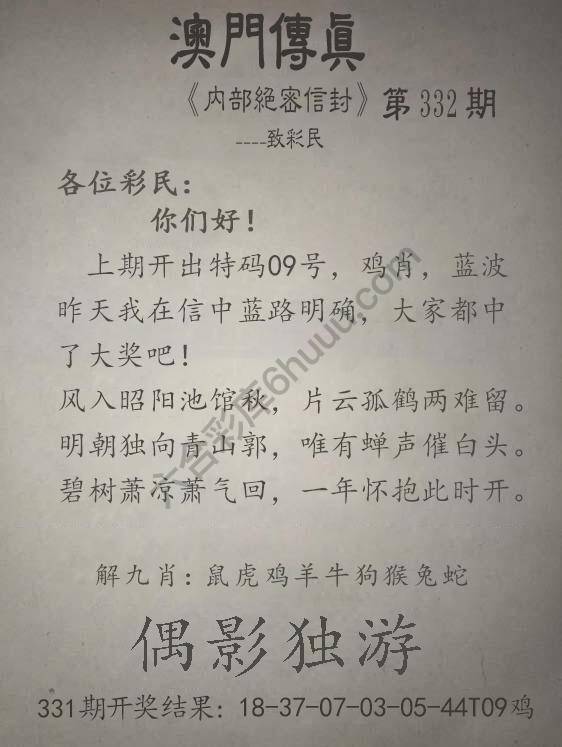 澳門傳眞
《内部絕密信封》第332期
----致彩民
各位彩民：
你们好！
上期开出特码09号，鸡肖，蓝波
昨天我在信中蓝路明确，大家都中
了大奖吧！
风入昭阳池馆秋，片云孤鹤两难留。
明朝独向青山郭，唯有蝉声催白头。
碧树萧凉萧气回，一年怀抱此时开。
解九肖：鼠虎鸡羊牛狗猴兔蛇
偶影独游
331期开奖结果：18-37-07-03-05-44T09鸡
六合彩库6huuu.com